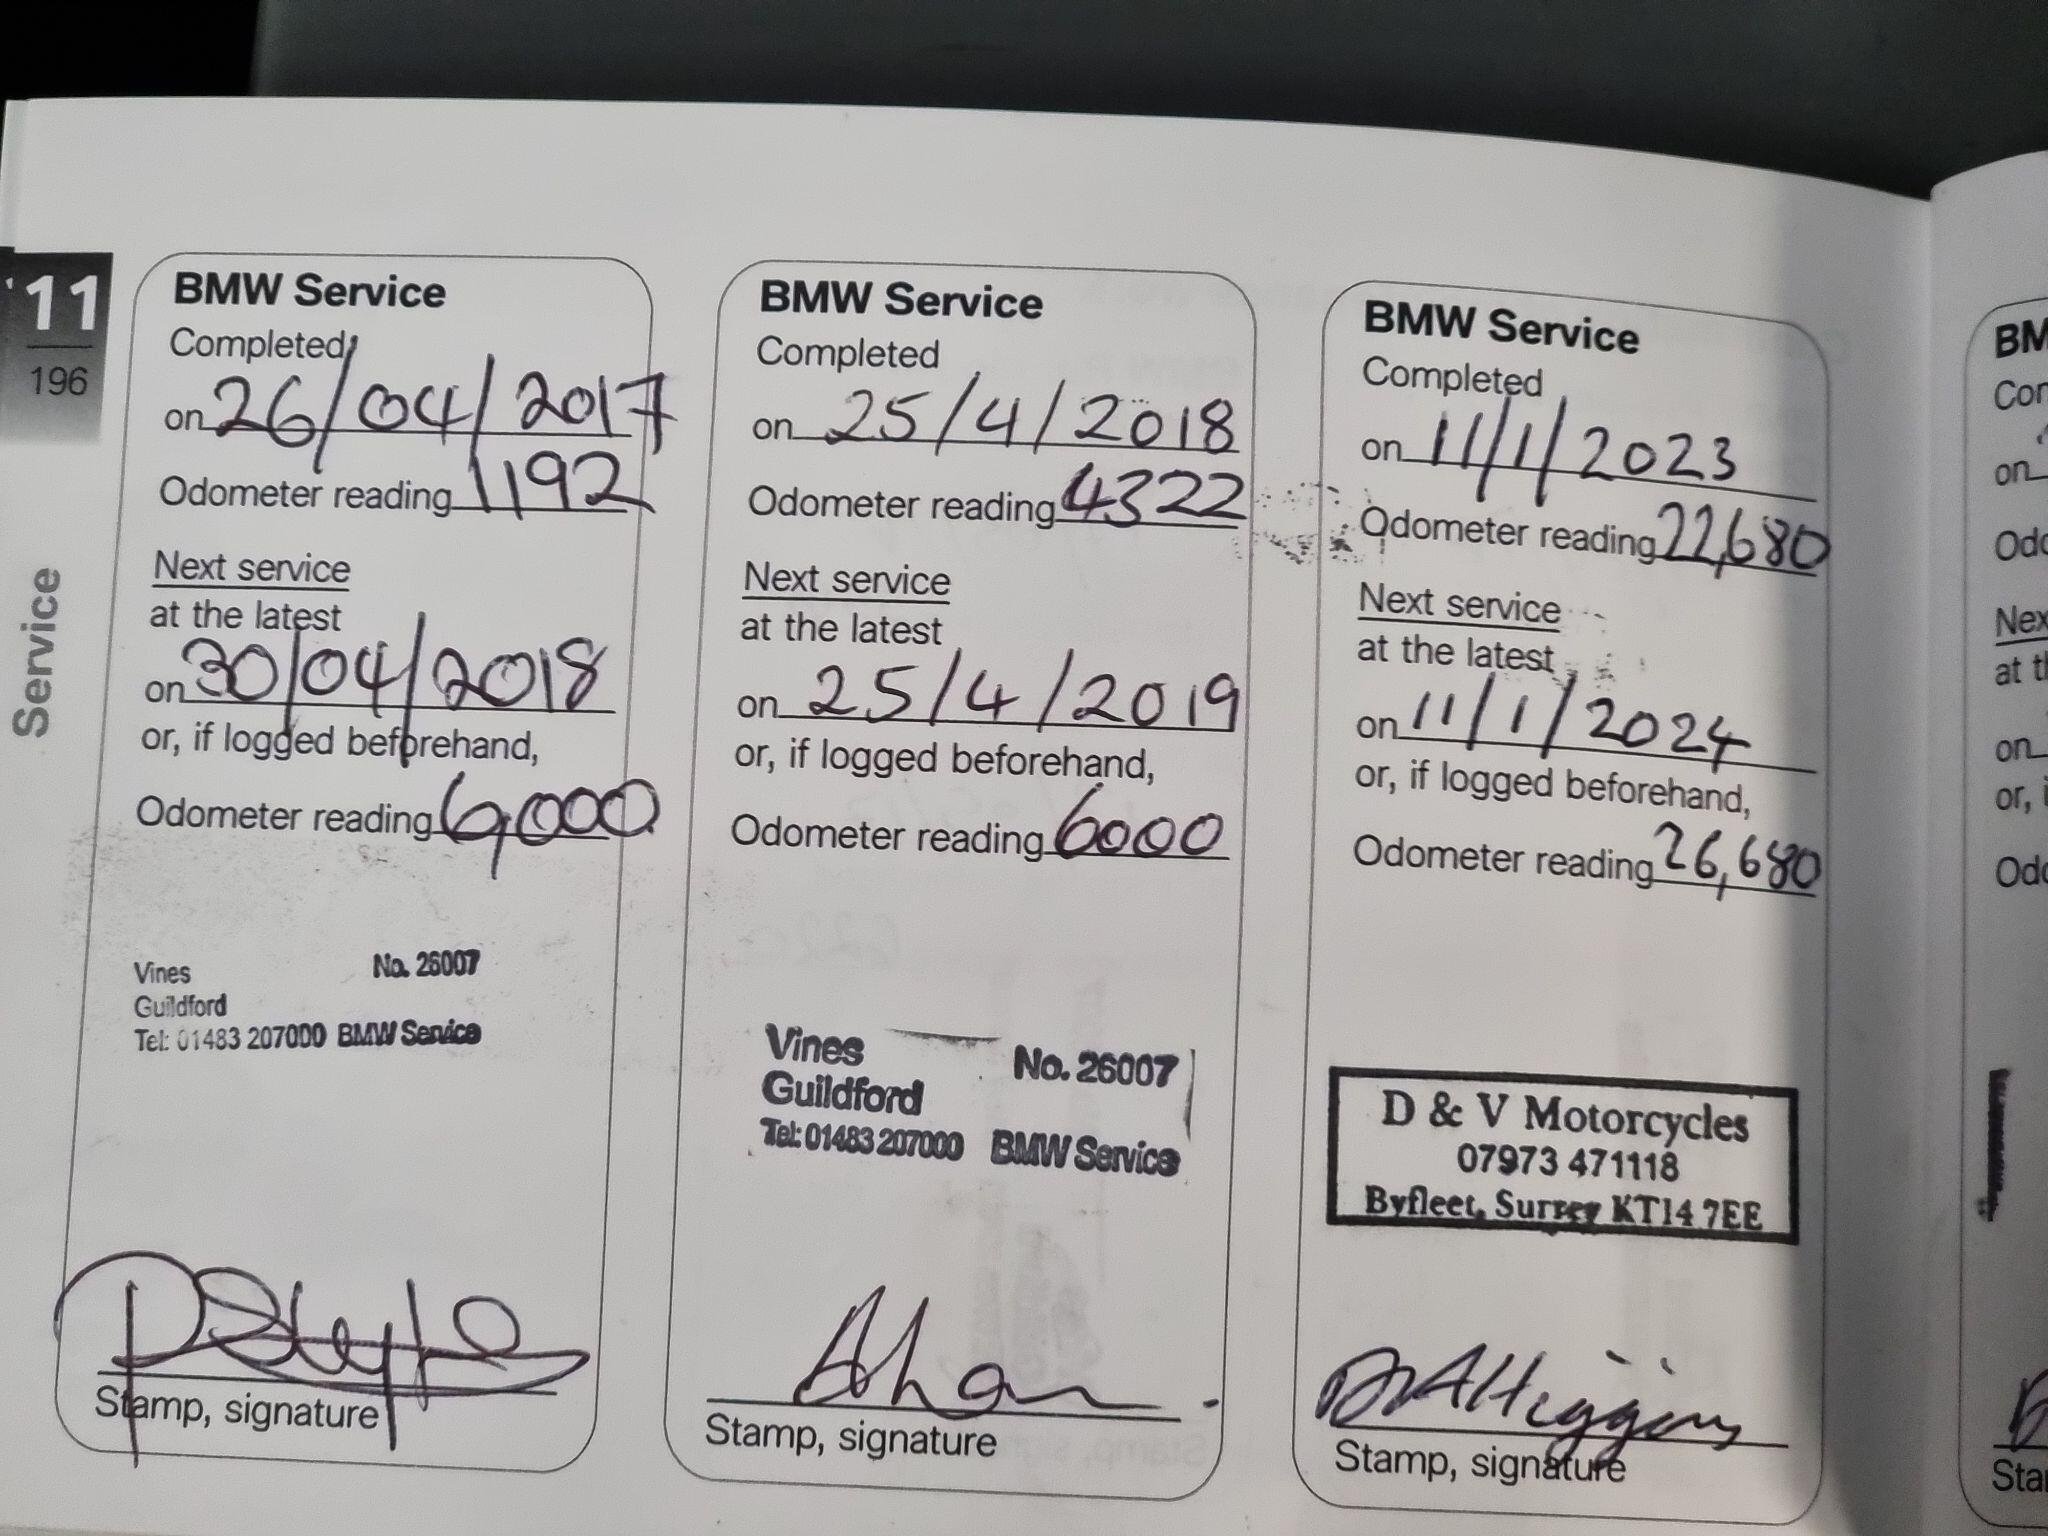 11
196
Service
BMW Service
Completed
on 26/04/2017
Odometer reading 1192
Next service
at the latest
on 30/04/2018
or, if logged beforehand,
Odometer reading 6,000
Vines No. 26007
Guildford
Tel: 01483 207000 BMW Service
Stamp, signature
BMW Service
Completed
on 25/4/2018
Odometer reading 4322
Next service
at the latest
on 25/4/2019
or, if logged beforehand,
Odometer reading 6000
Vines No. 26007
Guildford
Tel: 01483 207000 BMW Service
Stamp, signature
BMW Service
Completed
on 11/1/2023
Odometer reading 22,680
Next service
at the latest
on 11/1/2024
or, if logged beforehand,
Odometer reading 26,680
D & V Motorcycles
07973 471118
Byfleet, Surrey KT14 7EE
Higgins
Stamp, signature
BM
Com
on
Odo
Nex
at th
on
or, i
Odo
Sta